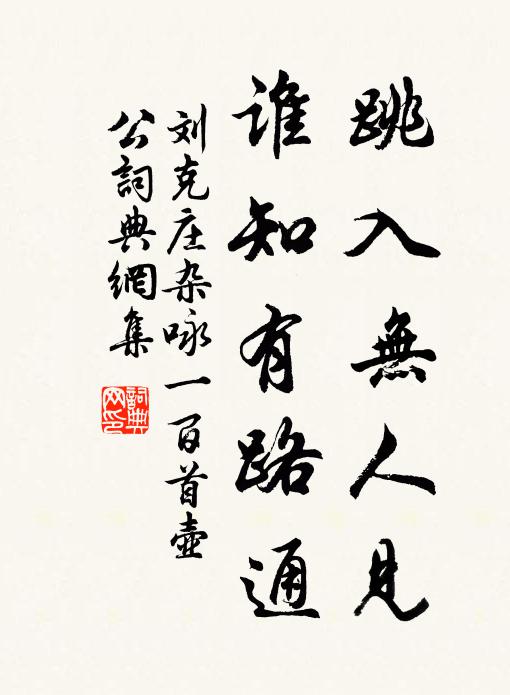 跳入無人見
谁知有路通
刘克庄杂咏一百首壶
公詞典網集
詞典网印